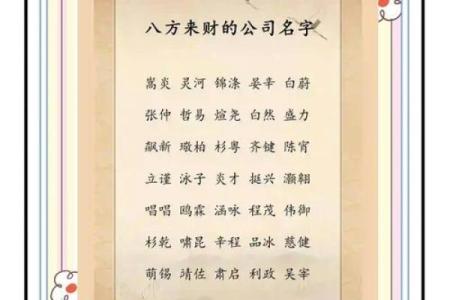 八方来财的公司名字
嵩炎 灵河 锦涤 晏辛 白蔚
张仲 哲易 煊尧 白然 盛力
飙新 璥柏 杉粤 齐键 陈宵
立谨 泳子 炎才 挺兴 灏翱
唱唱 鸥霖 涵咏 程茂 伟御
杉乾 啸昆 辛程 品冰 慈健
萌锡 靖佐 肃启 利政 吴宰